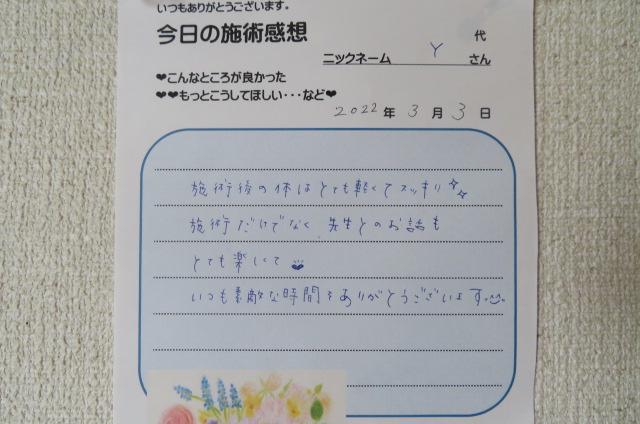 いつもありがとうございます。
今日の施術感想
代
ニックネーム Y さん
❤こんなところが良かった
❤❤もっとこうしてほしい・・・など❤
2022年 3月 3日
施術後の体はとても軽くてスッキリ✨
施術だけでなく 先生とのお話も
とても楽しくて
いつも素敵な時間をありがとうございます。